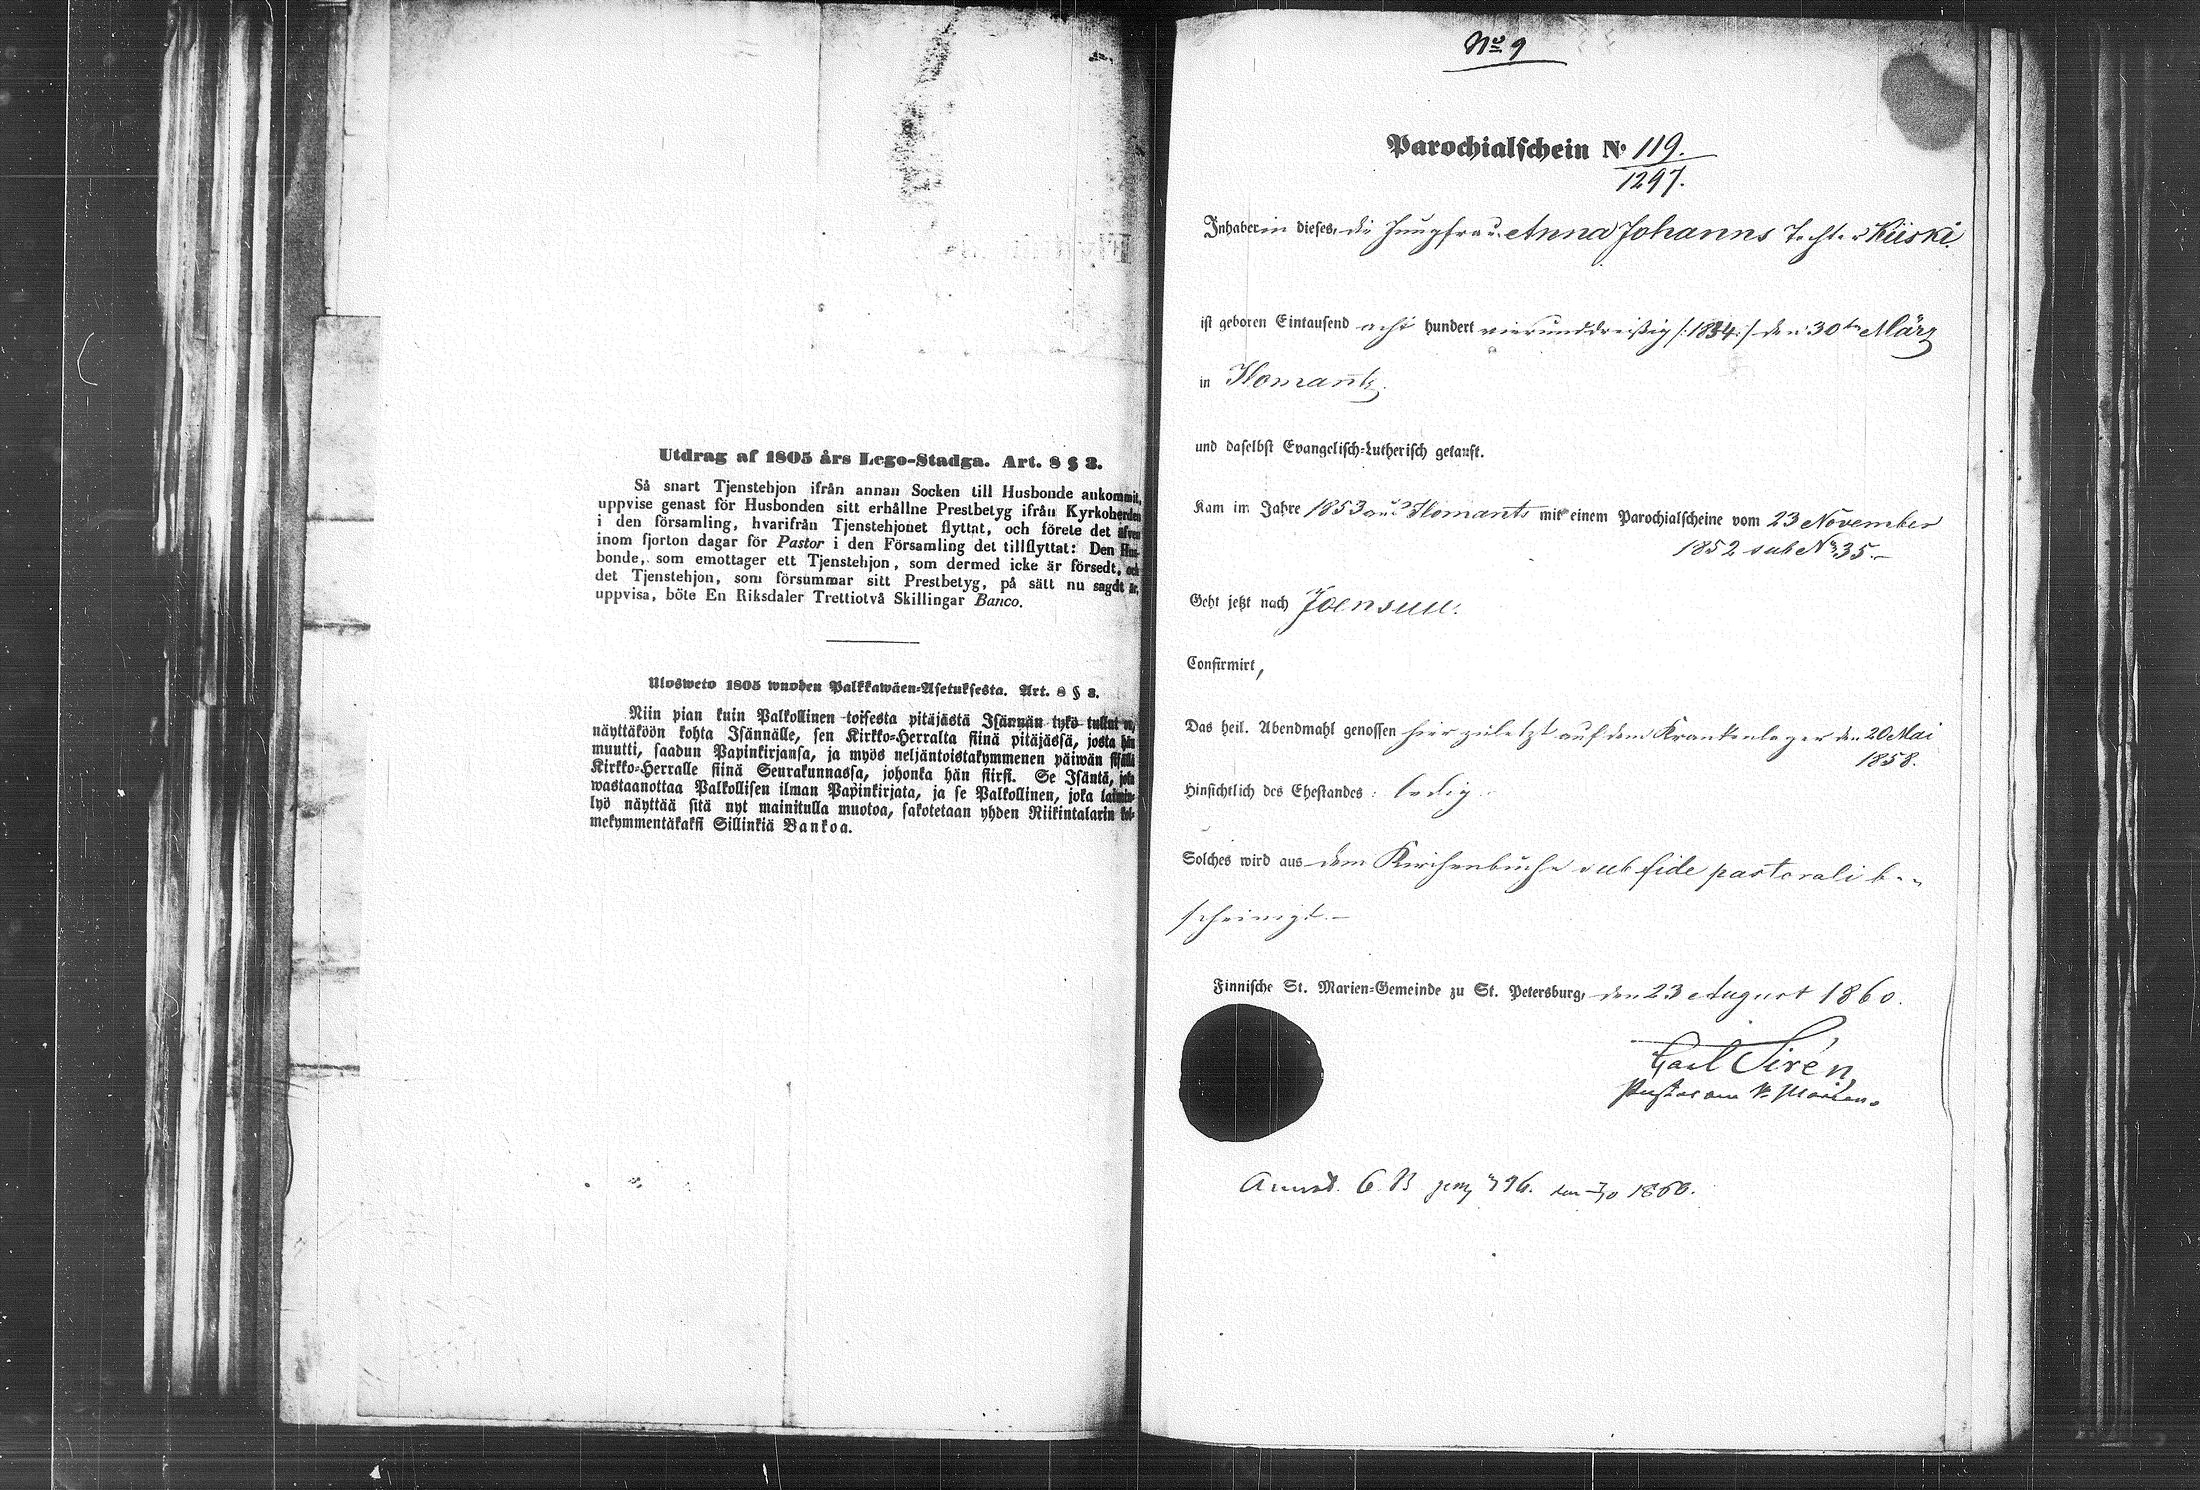 Utdrag af 1805 års Lego-Stadga. Art. 8 § 3.
Så snart Tjenstehjon ifrån annan Socken till Husbonde ankommit,
uppvise genast för Husbonden sitt erhållne Prestbetyg ifrån Kyrkoherden
i den församling, hvarifrån Tjenstehjonet flyttat, och förete det äfven
inom fjorton dagar för Pastor i den Församling det tillflyttat: Den Hus-
bonde, som emottager ett Tjenstehjon, som dermed icke är försedt, och
det Tjenstehjon, som försummar sitt Prestbetyg, på sätt nu sagdt är,
uppvisa, böte En Riksdaler Trettiotvå Skillingar Banco.
Ulosweto 1805 wuoden Palkkawäen-Asetuksesta. Art. 8 § 3.
Niin pian kuin Palkollinen toisesta pitäjästä Isännän tykö tullut on,
näyttäköön kohta Isännälle, sen Kirkko-Herralta siinä pitäjässä, josta hän
muutti, saadun Papinkirjansa, ja myös neljäntoistakymmenen päiwän sisällä
Kirkko-Herralle siinä Seurakunnassa, johonka hän siirsi. Se Isäntä, joka
wastaanottaa Palkollisen ilman Papinkirjata, ja se Palkollinen, joka laimin-
lyö näyttää sitä nyt mainitulla muotoa, sakotetaan yhden Riikintalarin kol-
mekymmentäkaksi Sillinkiä Bankoa.
No 9
Parochialschein No 119.
1297.
Inhaberin dieses, die Jungfrau Anna Johanns Tochter Kiiski
ist geboren Eintausend acht hundert vierunddreißig /:1834:/ den 30ten März
in Ilomants.
und daselbst Evangelisch-Lutherisch getauft.
Kam im Jahre 1853 aus Ilomants mit einem Parochialscheine vom 23 November
1852 sub No 35.
Geht jetzt nach Joensuu.
Confirmirt,
Das heil. Abendmahl genossen hier zuletzt auf dem Krankenlager den 20 Mai
1858.
Hinsichtlich des Ehestandes: ledig.
Solches wird aus dem Kirchenbuche sub fide pastorali be-
scheinigt.
Finnische St. Marien-Gemeinde zu St. Petersburg, den 23 August 1860.
Carl Sirén
Pastor an St. Marien.
C. B. 1860.